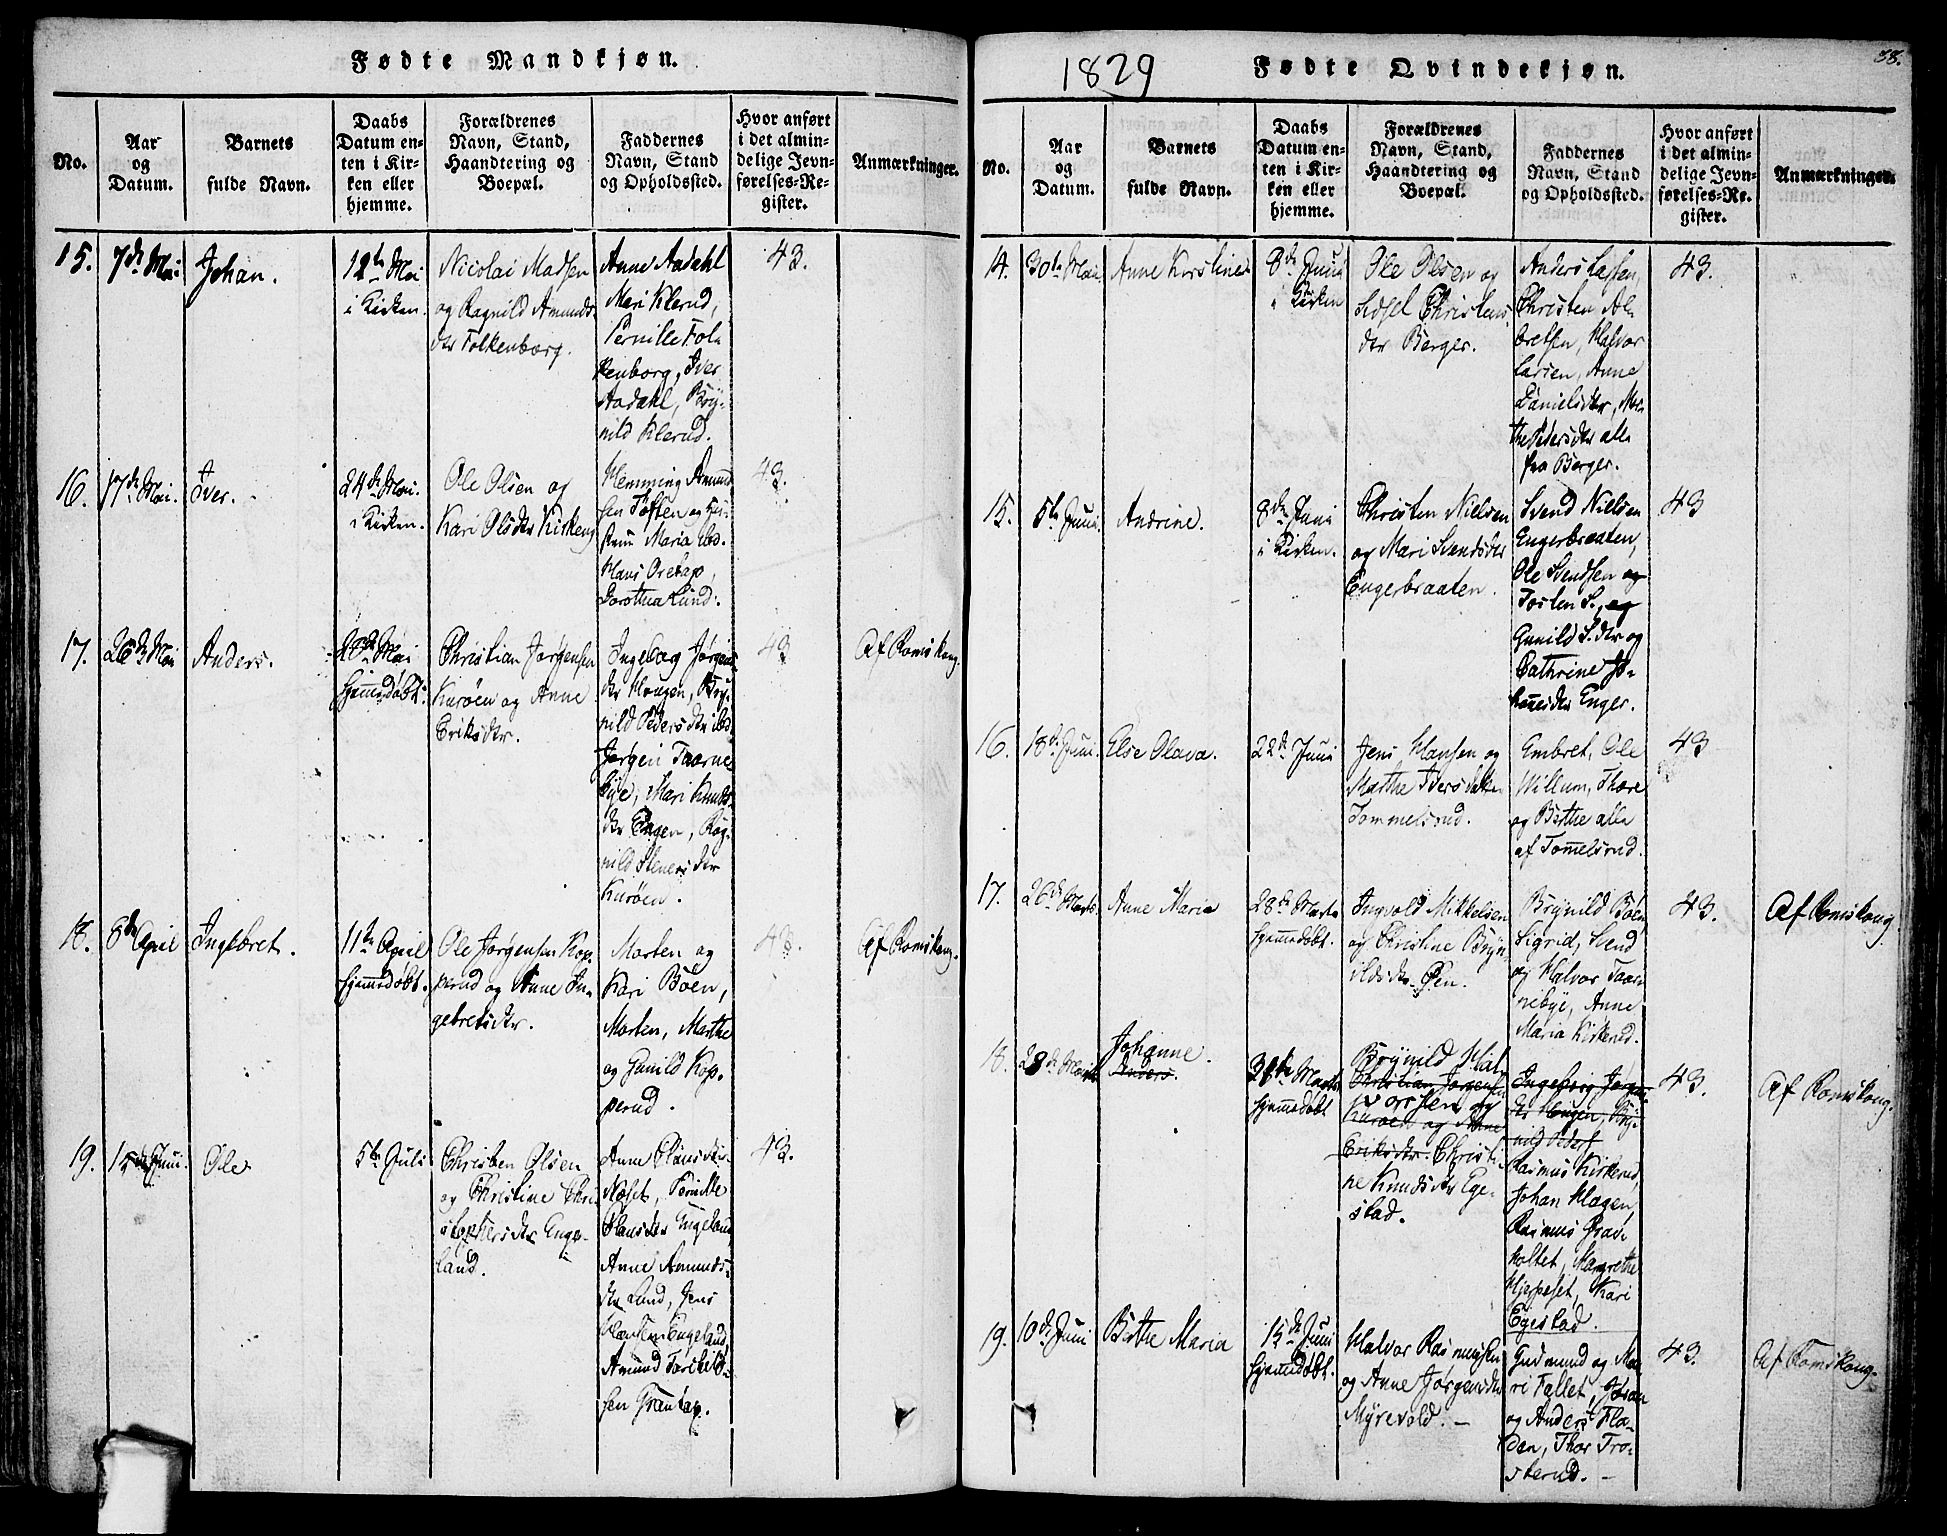 Fødte Mandkjøn.
No.
Aar
og
Datum.
Barnets
fulde Navn.
Daabs
Datum en-
ten i Kir-
ken eller
hjemme.
Forældrenes
Navn, Stand,
Haandtering og
Boepæl.
Faddernes
Navn, Stand
og Opholdssted.
Hvor anført
i det almin-
delige Jevn-
førelses-Re-
gister.
Anmærkninger.
15.
7de Mai
Johan.
12te Mai
i Kirken.
Nicolai Madsen
og Ragnild Amunds-
dtr Folkenborg.
Anne Aadahl
Mari Klerud,
Pernille Fol-
kenborg, Iver
Aadahl, Bry-
nild Klerud.
43.
16.
17de Mai.
Iver.
24de Mai.
i Kirken.
Ole Olsen og
Kari Olsdtr Kirkeng
Hemming Amund
sen Toften og Hu-
struu Maria ibd.
Hans Oretap,
Dorothea Lund.
43.
17.
26de Mai
Anders.
28de Mai
hjemmedøbt.
Christian Jørgensen
Kurøen og Anne
Eriksdtr.
Ingeborg Jørgens-
dtr Hougen, Bry-
nild Pedersdtr ibd.
Jørgen Taarne
bye, Mari Knuds-
dtr Engen, Rag-
nild Stenersdtr
Kurøen.
43
Af Romskoug.
18.
8de April
Ingebret.
11te April
hjemmedøbt.
Ole Jørgensen Kop-
perud og Anne In-
gebretsdtr.
Morten og
Kari Böen,
Morten, Marthe
og Gunild Kop-
perud.
43.
Af Romskoug.
19.
15de Juni.
Ole
5te Juli
Christen Olsen
og Christine Chri-
stophersdtr Enge-
land.
Anne Olausdtr
Næset, Pernille
Olausdtr Engeland
Anne Amunds-
dtr Lund, Jens
Hansen Engeland,
Amund Torkild-
sen Grantap.
43.
1829
Fødte Qvindekjøn.
38.
No.
Aar
og
Datum.
Barnets
fulde Navn.
Daabs
Datum en-
ten i Kir-
ken eller
hjemme.
Forældrenes
Navn, Stand,
Haandtering og
Boepæl.
Faddernes
Navn, Stand
og Opholdssted.
Hvor anført
i det almin-
delige Jevn-
førelses-Re-
gister.
Anmærkninger.
14.
30te Mai
Anne Kirstine
8de Juni
i Kirken
Ole Olsen og
Sidsel Christens
dtr Berger.
Anders Larsen,
Christen Al-
bretsen, Halvor
Larsen, Anne
Danielsdtr, Mar-
the Pedersdtr alle
fra Berger.
43.
15.
5te Juni
Andrine.
8de Juni
i Kirken.
Christen Nielsen
og Mari Svendsdtr
Engerbraaten.
Svend Nielsen
Engerbraaten,
Ole Svendsen og
Josten S., og
Gunild S.dtr og
Cathrine Jo-
hannesdtr Enger.
43
16.
18de Juni.
Else Olava.
22de Juni
Jens Hansen og
Marthe Iversdatter
Tommelsrud.
Embret, Ole
Willum, Thore
og Birthe alle
af Tommelsrud.
43
17.
26de Marts
Anne Maria
28de Marts
hjemmedøbt.
Ingvold Mikkelsen
og Christine Bryn-
ildsdtr Øen.
Brynild Böen
Sigrid, Svend
og Halvor Taar-
nebye, Anne
Maria Kirkerud.
43.
Af Romskoug.
18.
28de Marts
Johanne.
Anders.
31te Marts
hjemmedøbt
Brynild Hal-
Christian Jørgensen
vorsen og
Kurøen og Anne
Eriksdtr. Christi-
ne Knudsdtr Ege-
stad.
Ingeborg Jørgens-
dtr Hougen, Bry-
nild Peders
Rasmus Kirkerud,
Johan Hagen,
Rasmus Graa-
holtet, Margrethe
Hjerpeset, Kari
Egestad.
43.
Af Romskoug.
19.
10de Juni
Birthe Maria
15de Juni
hjemmedøbt.
Halvor Rasmussen
og Anne Jørgensdtr
Myrevold.
Gudmund og Ma-
ri Fallet, Jøran
og Anders Fla-
den, Thor Tro-
sterud.
43.
Af Romskoug.